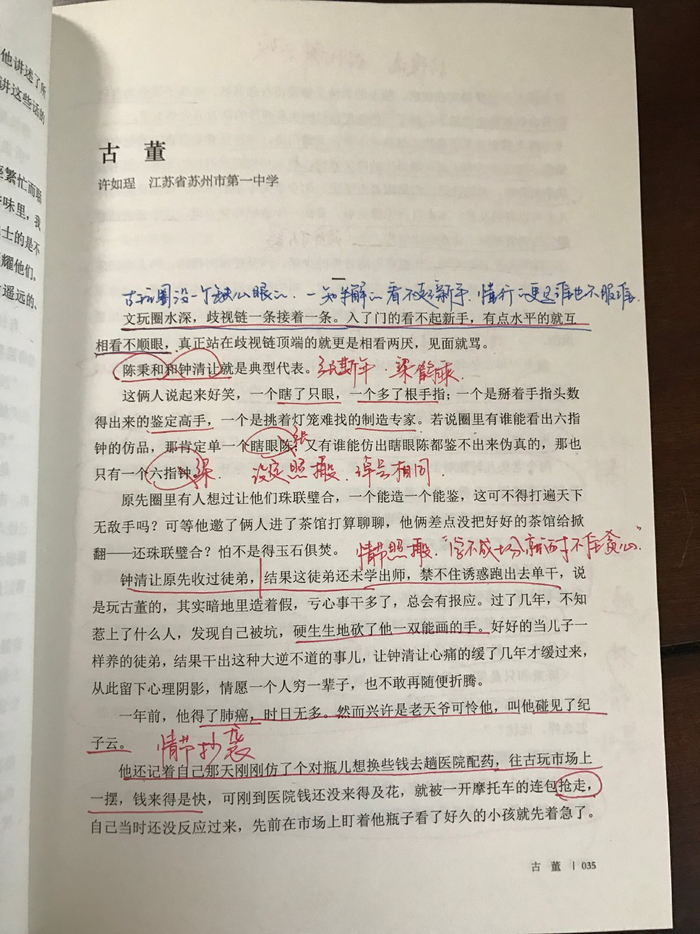 他讲述了所
讲这些话的
繁忙而琐
味里，我
士的是不
耀他们。
有遥远的、
古 董
许如珵 江苏省苏州市第一中学
一
文玩圈水深，歧视链一条接着一条。入了门的看不起新手，有点水平的就互
相看不顺眼，真正站在歧视链顶端的就更是相看两厌，见面就骂。
陈秉和和钟清让就是典型代表。
这俩人说起来好笑，一个瞎了只眼，一个多了根手指；一个是掰着手指头数
得出来的鉴定高手，一个是挑着灯笼难找的制造专家。若说圈里有谁能看出六指
钟的仿品，那肯定单一个瞎眼陈，又有谁能仿出瞎眼陈都鉴不出来伪真的，那也
只有一个六指钟。
设定照搬 绰号相同
原先圈里有人想过让他们珠联璧合，一个能造一个能鉴，这可不得打遍天下
无敌手吗？可等他邀了俩人进了茶馆打算聊聊，他俩差点没把好好的茶馆给掀
翻——还珠联璧合？怕不是得玉石俱焚。
情节照搬
钟清让原先收过徒弟，结果这徒弟还未学出师，禁不住诱惑跑出去单干，说
是玩古董的，其实暗地里造着假，亏心事干多了，总会有报应。过了几年，不知
惹上了什么人，发现自己被坑，硬生生地砍了他一双能画的手。好好的当儿子一
样养的徒弟，结果干出这种大逆不道的事儿，让钟清让心痛的缓了几年才缓过来，
从此留下心理阴影，情愿一个人穷一辈子，也不敢再随便折腾。
一年前，他得了肺癌，时日无多。然而兴许是老天爷可怜他，叫他碰见了纪
子云。
情节抄袭
他还记着自己那天刚刚仿了个对瓶儿想换些钱去趟医院配药，往古玩市场上
一摆，钱来得是快，可刚到医院钱还没来得及花，就被一开摩托车的连包抢走，
自己当时还没反应过来，先前在市场上盯着他瓶子看了好久的小孩就先着急了。
古 董 | 035